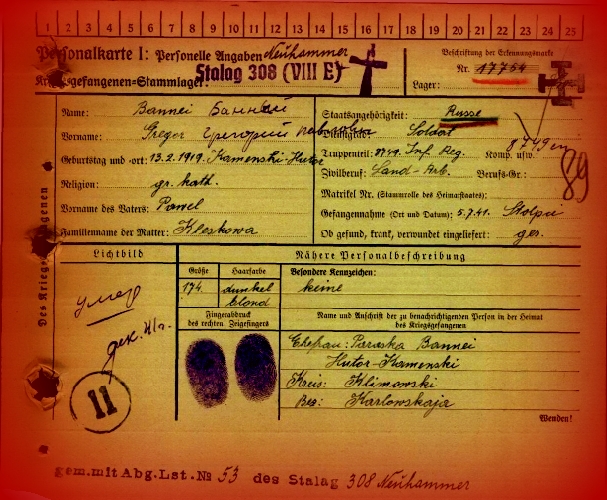 1 2 3 4 5 6 7 8 9 10 11 12 13 14 15 16 17 18 19 20 21 22 23 24 25
Personalkarte I: Personelle Angaben Neuhammer
Kriegsgefangenen-Stammlager: Stalag 308 (VIII E)
Beschriftung der Erkennungsmarke
Nr. 17754
Lager:
Des Kriegsgefangenen
Name: Bannei Банней
Vorname: Gregor Григорий
Geburtstag und -ort: 13.2.1919. Kamenski-Hutor
Religion: gr. kath.
Vorname des Vaters: Pawel
Familienname der Mutter: Kleskowa
Staatsangehörigkeit: Russe
Dienstgrad: Soldat
Truppenteil: 8749. Inf. Reg. Komp. usw.
8749 en
Zivilberuf: Land-Arb. Berufs-Gr.:
89
Matrikel Nr. (Stammrolle des Heimatstaates):
Gefangennahme (Ort und Datum): 5.7.41. Stolpu
Ob gesund, krank, verwundet eingeliefert: ges.
Lichtbild
умер
дек. 41г.
11
Nähere Personalbeschreibung
Größe
174.
Haarfarbe
dunkel
blond
Besondere Kennzeichen:
keine
Fingerabdruck
des rechten Zeigefingers
Name und Anschrift der zu benachrichtigenden Person in der Heimat
des Kriegsgefangenen
Ehefrau: Paraska Bannei
Hutor-Kamenski
Kreis: Klimowski
Bez: Karlowskaja
Wenden!
gem. mit Abg. Lst. № 53 des Stalag 308 Neuhammer